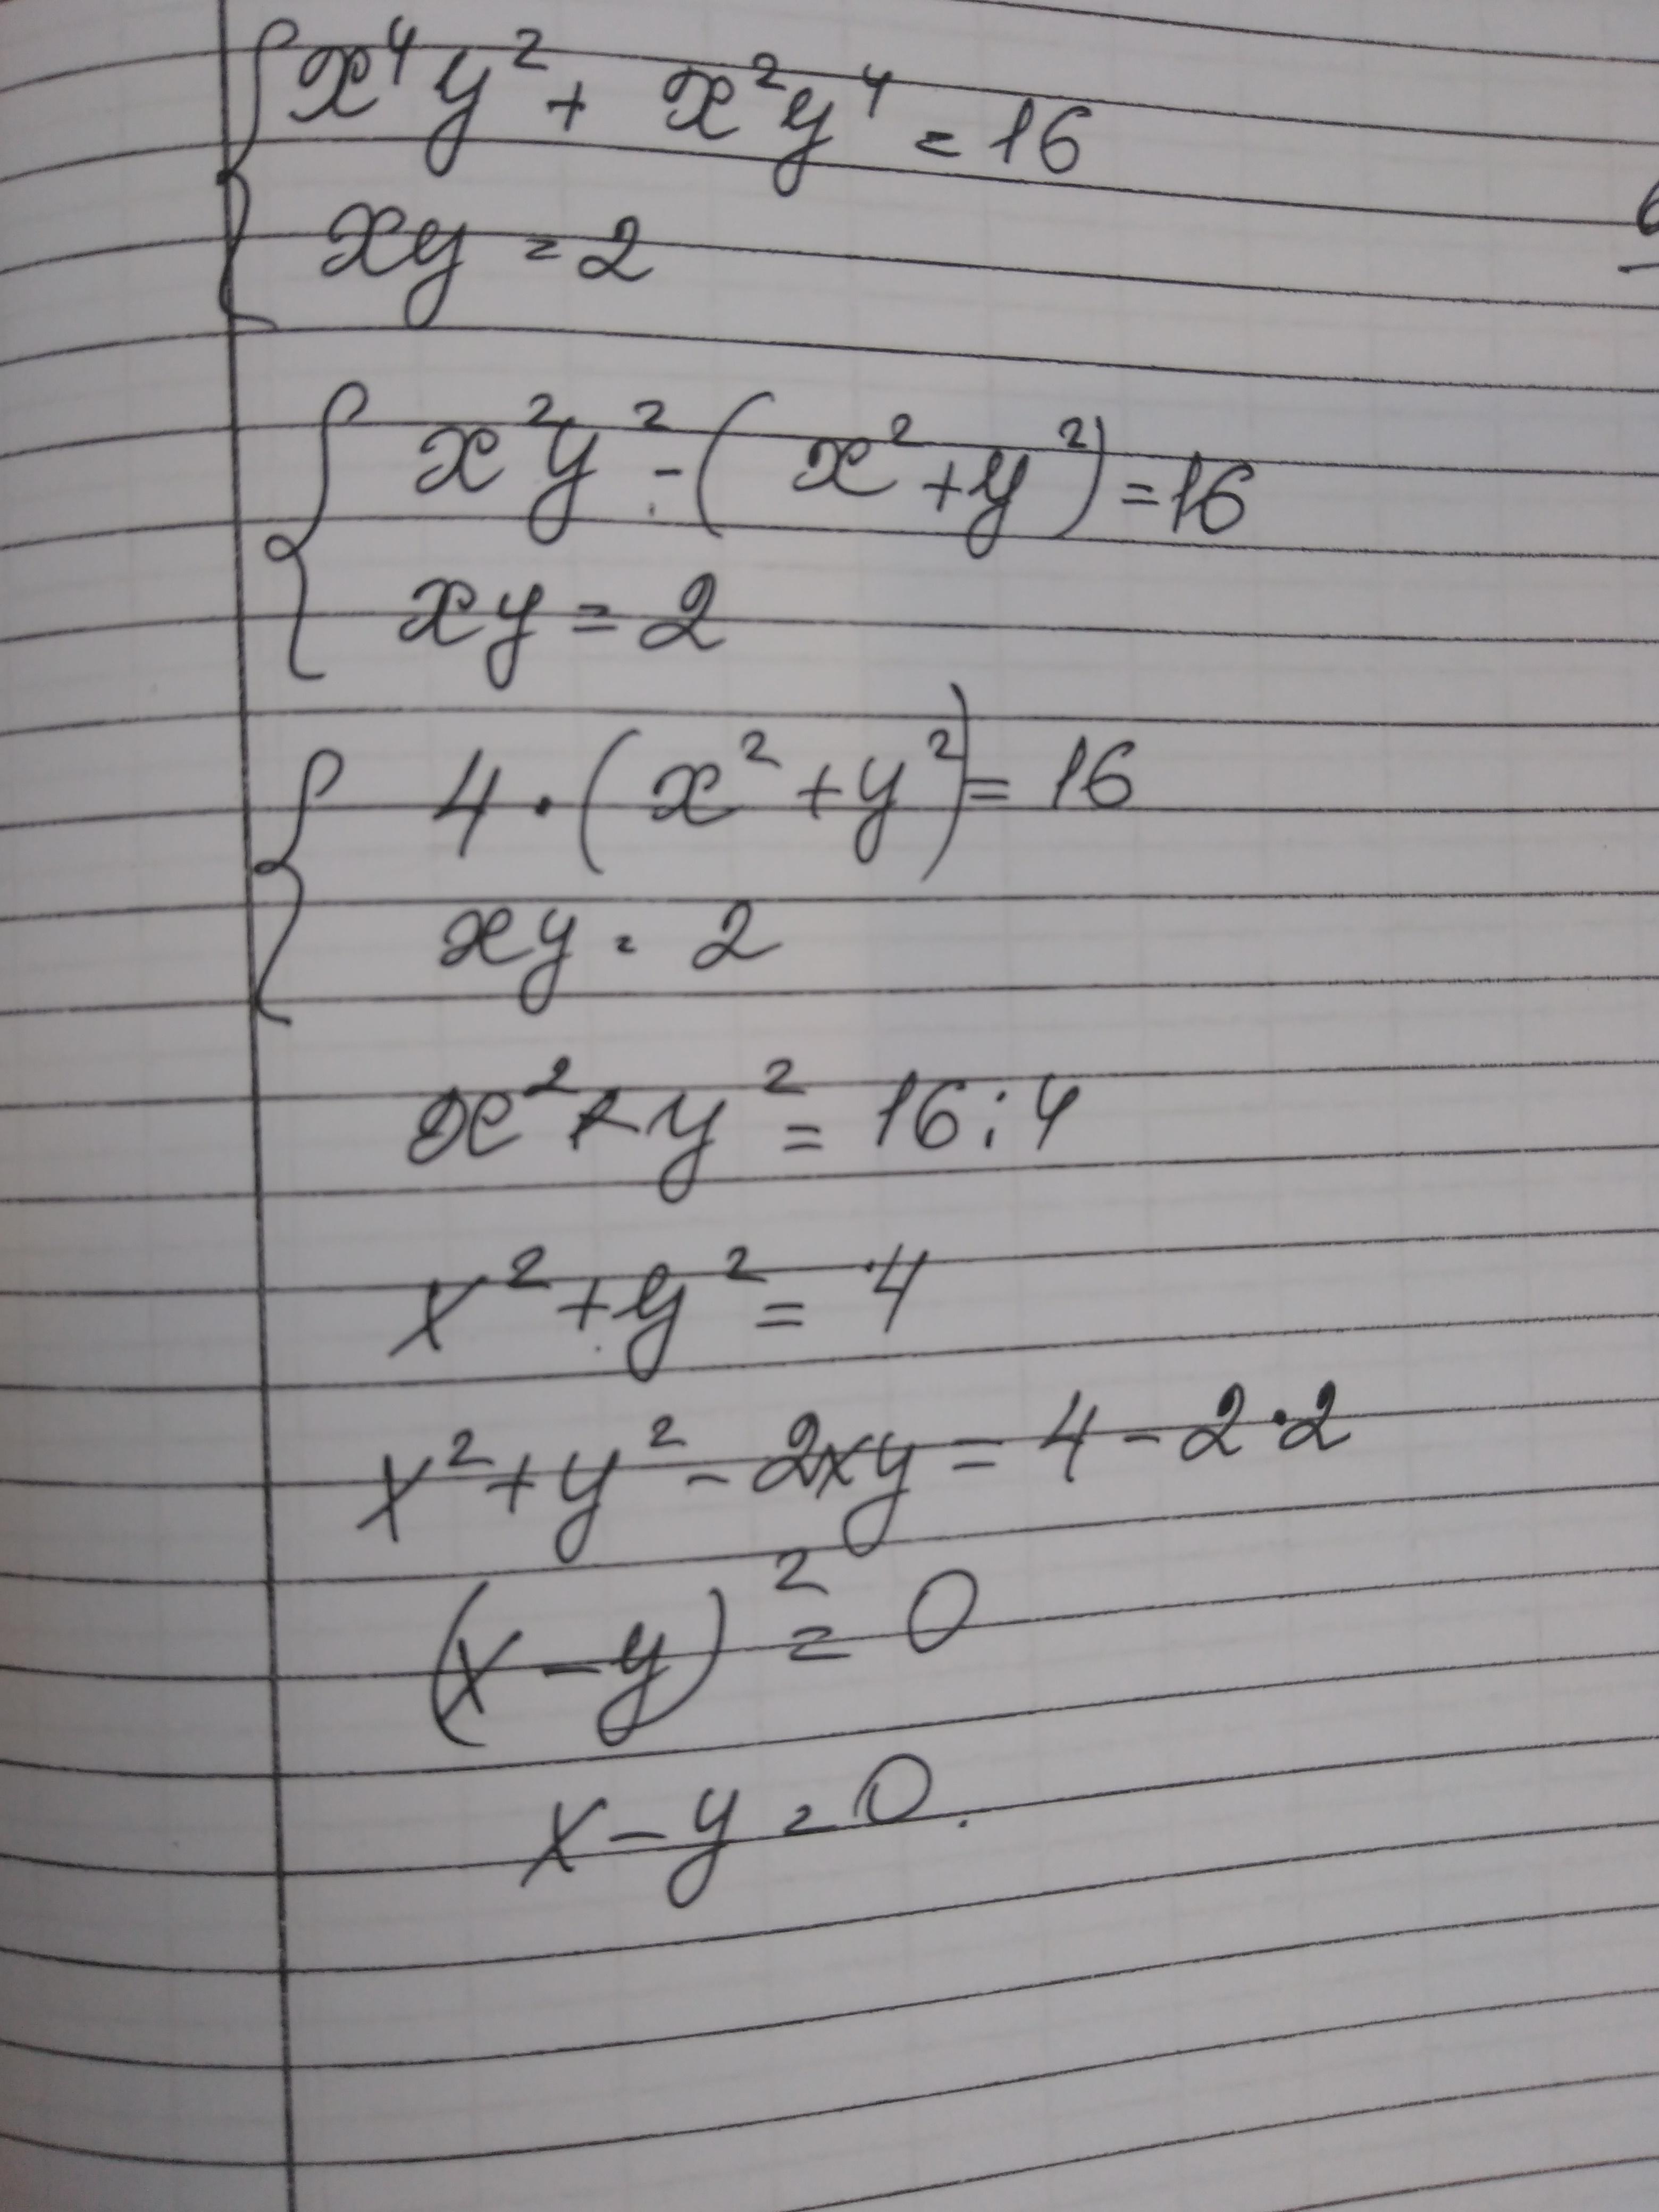 x⁴y² + x²y⁴ = 16
xy = 2
x²y² - (x² + y²) = 16
xy = 2
4 · (x² + y²) = 16
xy = 2
x² + y² = 16 : 4
x² + y² = 4
x² + y² - 2xy = 4 - 2 · 2
(x - y)² = 0
x - y = 0.